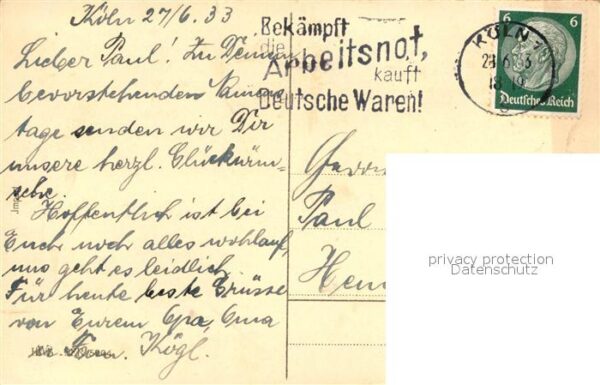 Köln 27/6.33
Lieber Paul! Zu Deinem
bevorstehenden Namens
tage senden wir Dir
unsere herzl. Glückwün-
sche.
Hoffentlich ist bei
Euch noch alles wohlauf,
uns geht es leidlich.
Für heute beste Grüsse
von Eurem Opa, Oma
Fam. Kögl.
Bekämpft
die
Arbeitsnot,
kauft
Deutsche Waren!
KÖLN
6 6
Deutsches Reich
Paul
privacy protection
Datenschutz